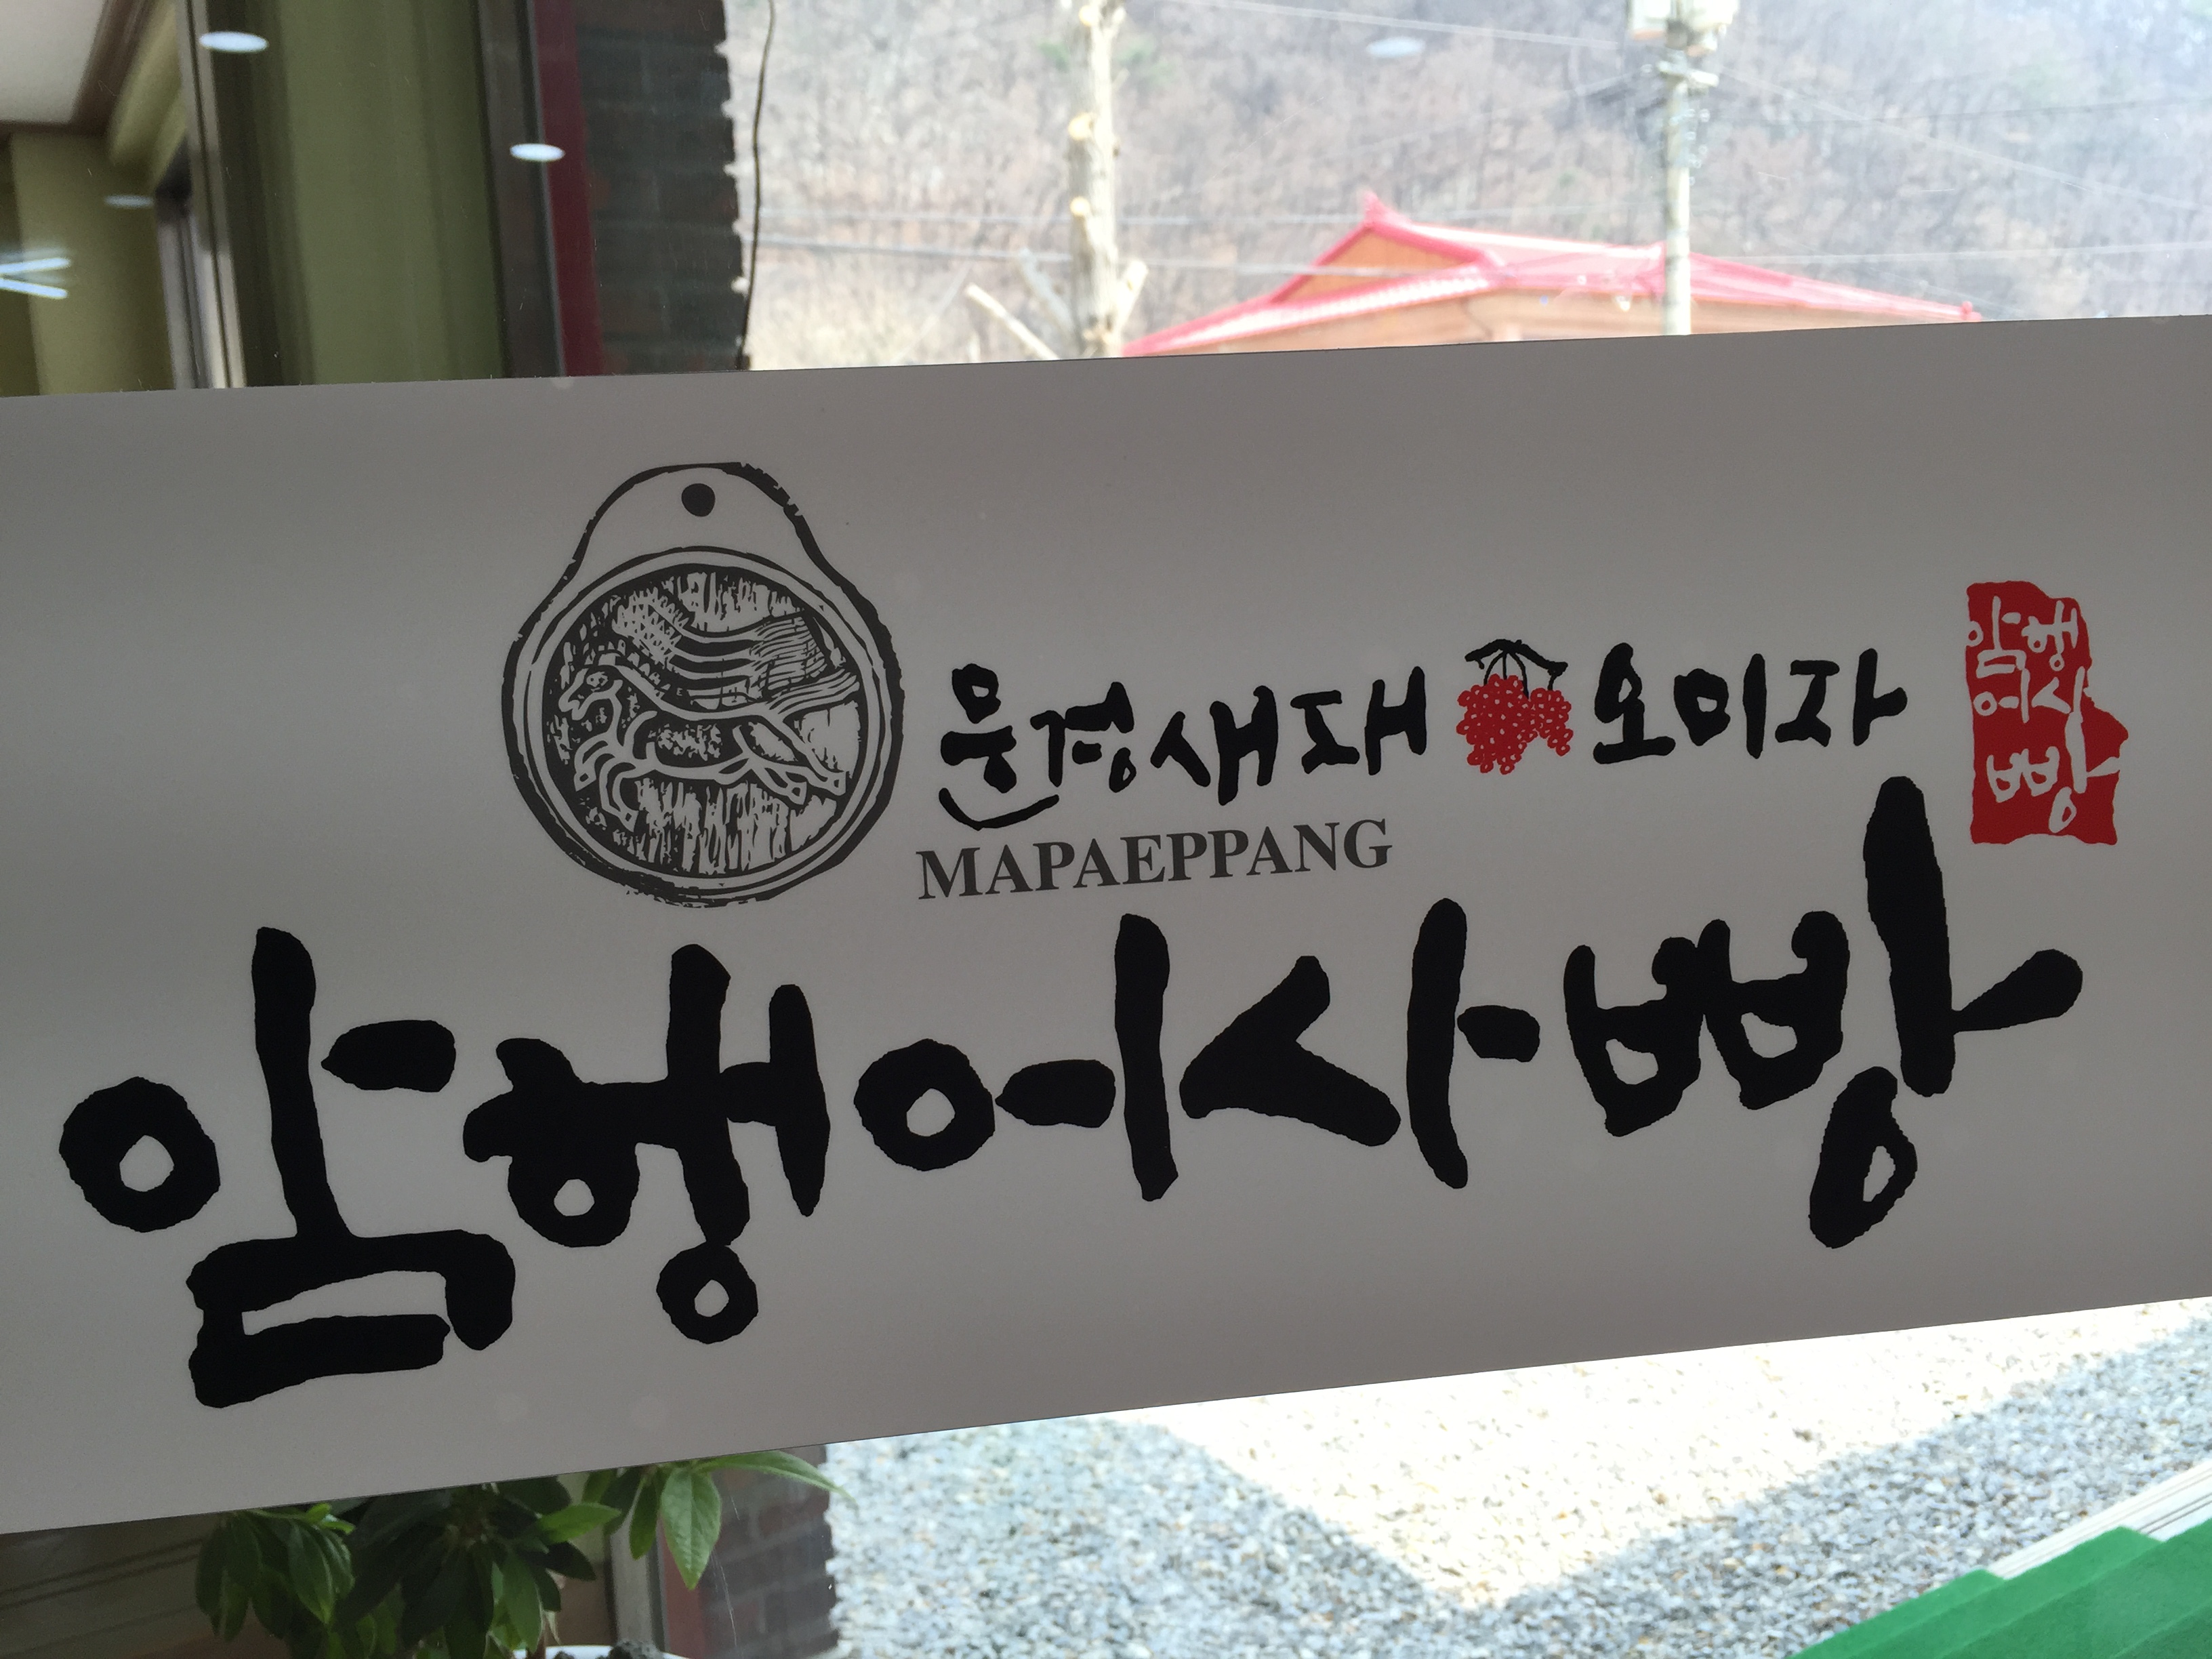 문경새재 오미자
암행어사빵
MAPAEPPANG
암행어사빵